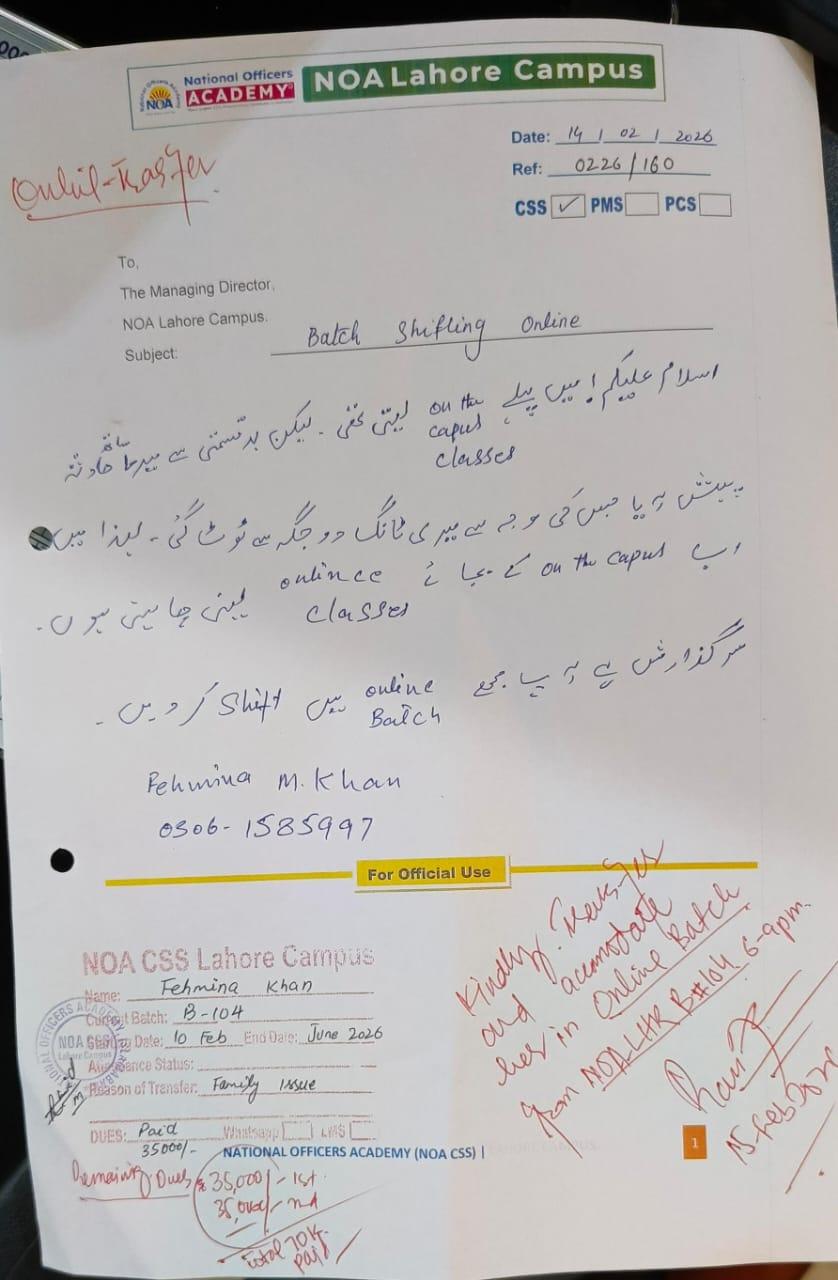 National Officers
ACADEMY
NOA
NOA Lahore Campus
Date: 14 / 02 / 2026
Ref: 0226/160
CSS ✓ PMS PCS
To,
The Managing Director,
NOA Lahore Campus.
Subject: Batch Shifting Online
اسلام علیکم! میں پہلے on the capus classes لیتی تھی۔ لیکن بدقسمتی سے میرے ساتھ حادثہ
پیش آیا جس کی وجہ سے میری ٹانگ دو جگہ سے ٹوٹ گئی۔ لہذا میں
اب on the capus کے بجائے onlince classes لینی چاہتی ہوں۔
گزارش ہے آپ مجھے online Batch میں shift کر دیں۔
Fehmina M. Khan
0306-1585997
For Official Use
NOA CSS Lahore Campus
Name: Fehmina Khan
Current Batch: B-104
Date: 10 Feb End Date: June 2026
Status:
Reason of Transfer: Family Issue
DUES: Paid Whatsapp LMS
35000/-
NATIONAL OFFICERS ACADEMY (NOA CSS) |
Remaining Dues 35,000/- 1st
35,000/-
Total 70K
paid
Kindly Transfer
and
her in Online Batch
from NOA LHR B#104 6-9pm.
15 Feb
1